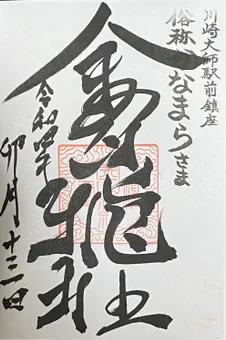 川崎大師駅前鎮座
俗称かなまらさま
金
社
令和四年
卯月十三日